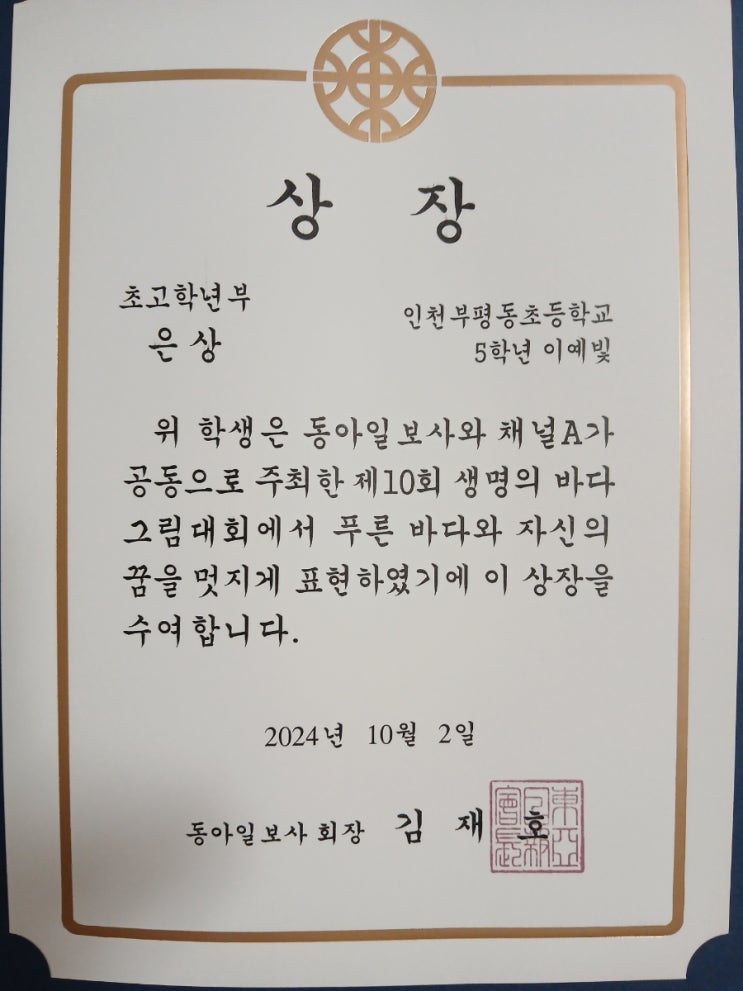 상 장
초고학년부
은상
인천부평동초등학교
5학년 이예빛
위 학생은 동아일보사와 채널A가
공동으로 주최한 제10회 생명의 바다
그림대회에서 푸른 바다와 자신의
꿈을 멋지게 표현하였기에 이 상장을
수여합니다.
2024년 10월 2일
동아일보사 회장 김재호